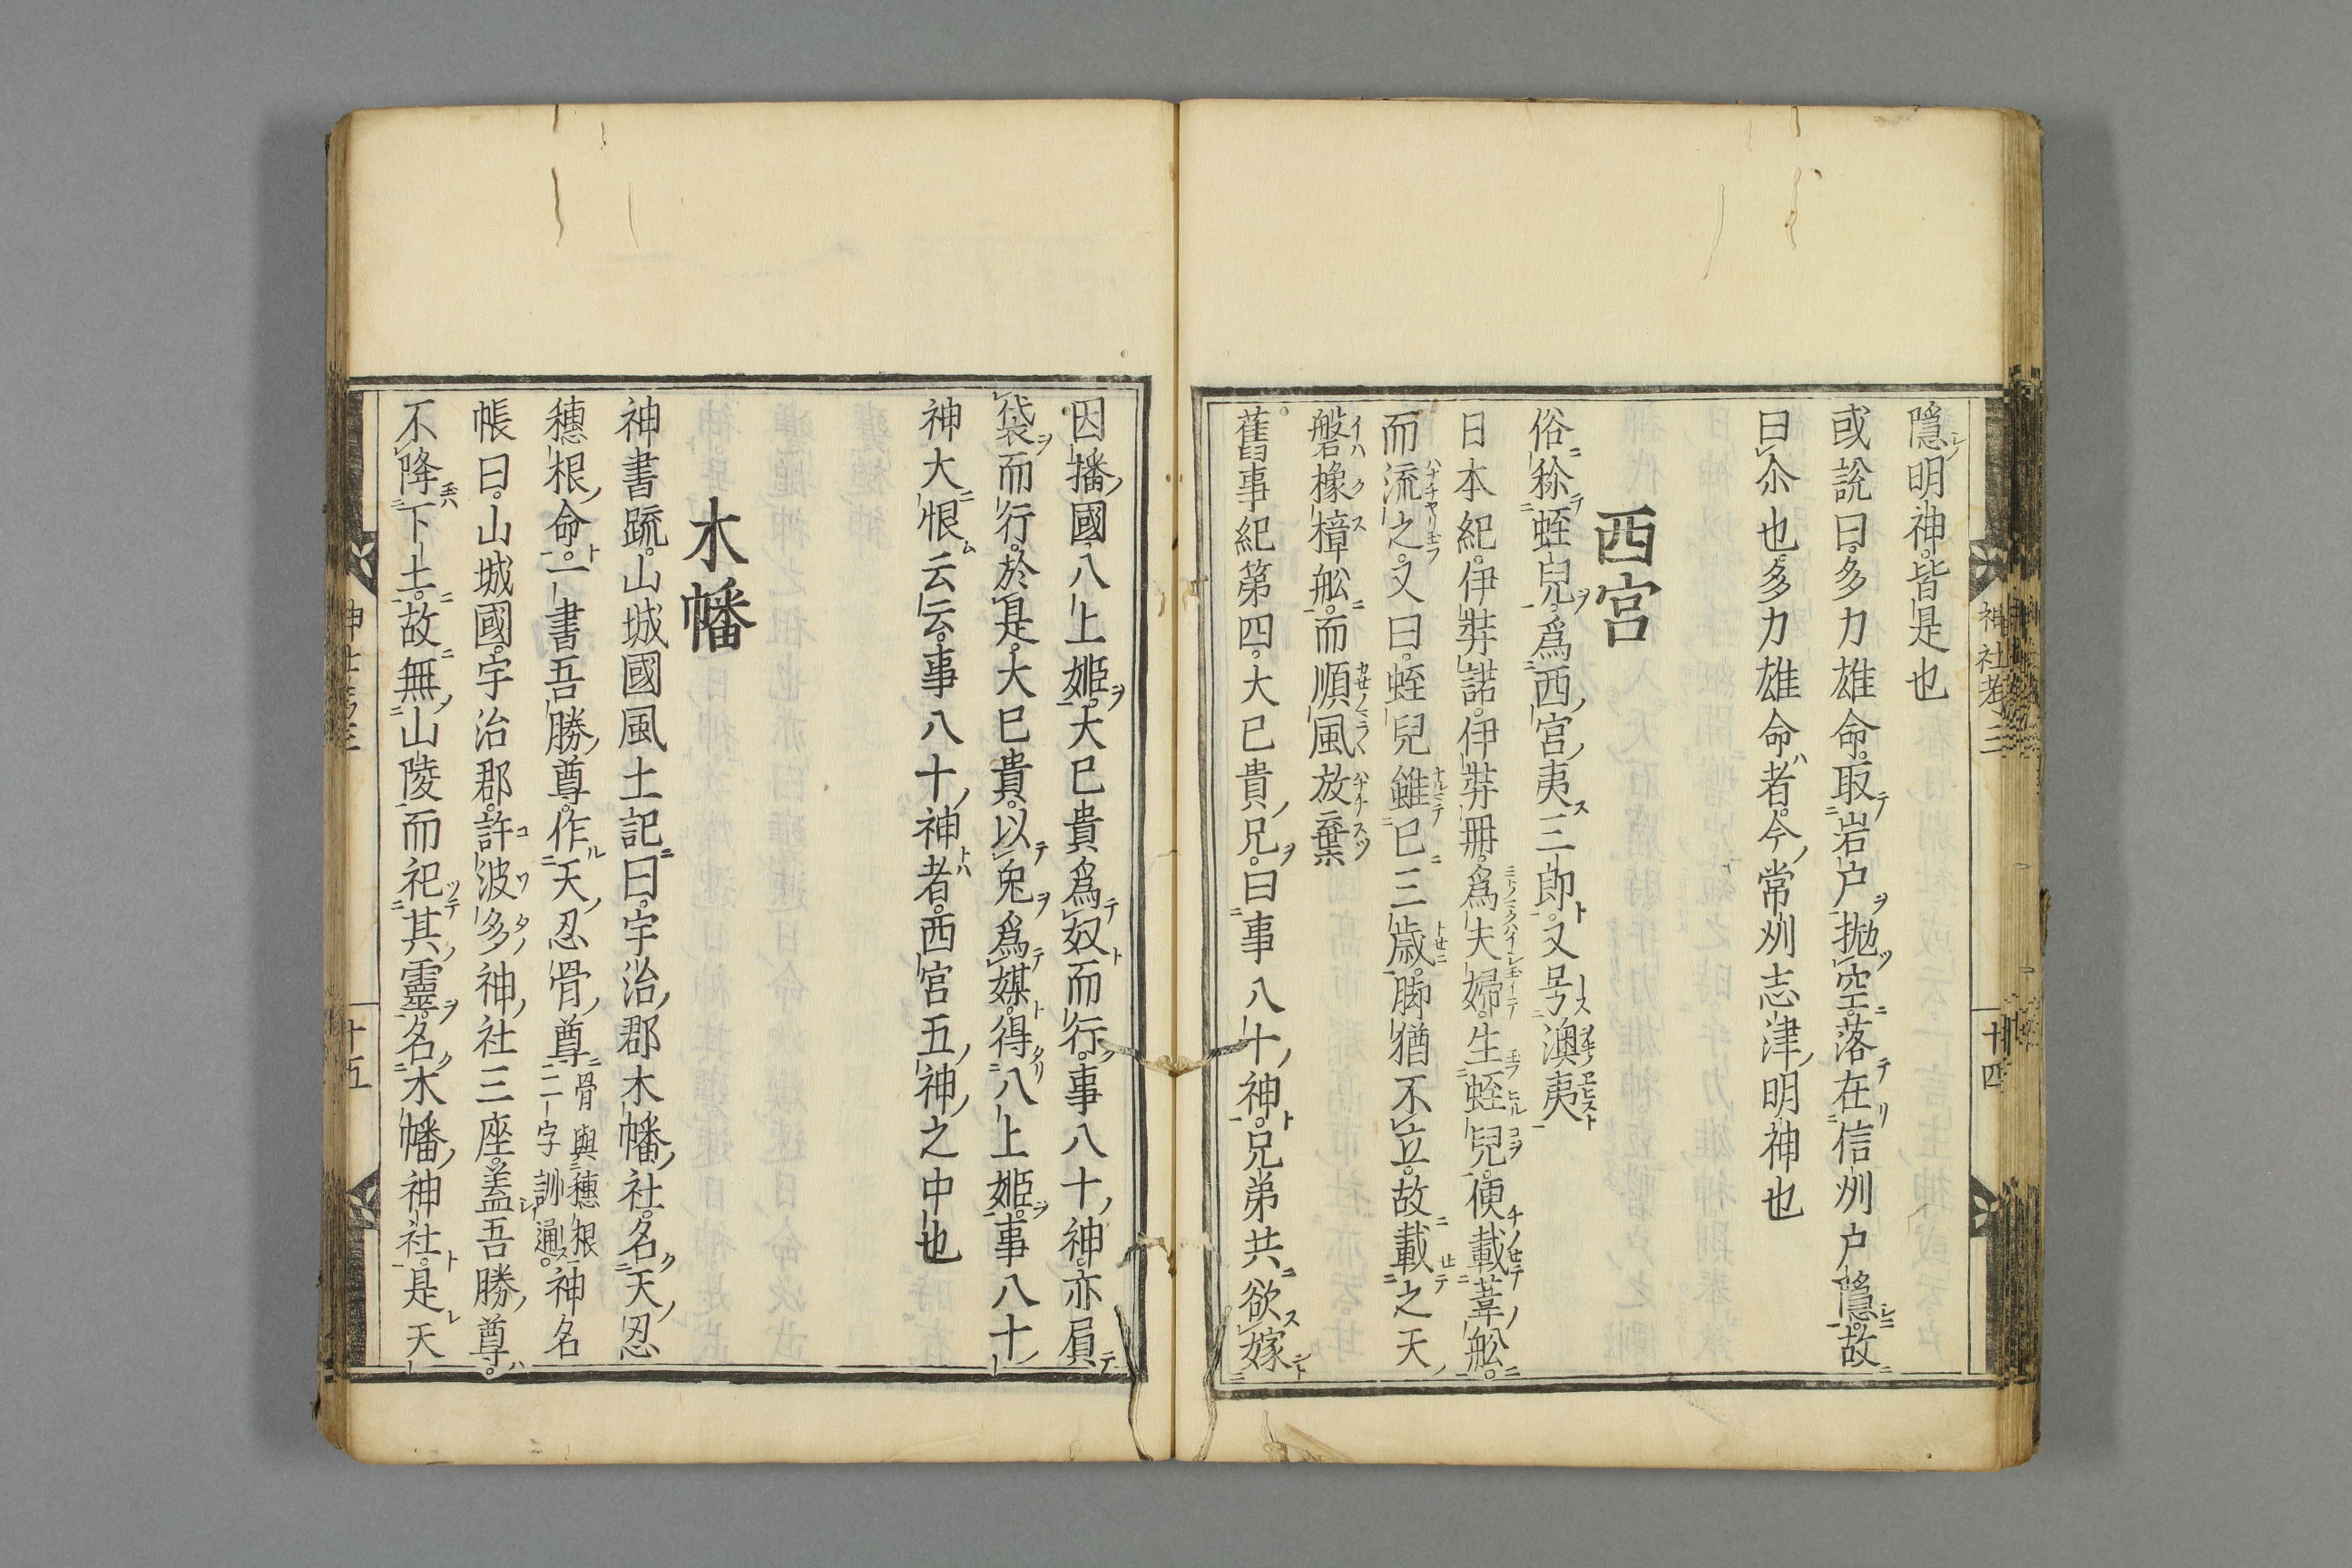 隱明神皆是也
或說曰多力雄命取岩户抛空落在信州户隱故
曰尒也多力雄命者今常州志津明神也
西宮
俗称蛭兒爲西宮夷三郎又号澳夷
日本紀伊弉諾伊弉冊爲夫婦生蛭兒便載葦舩
而流之又曰蛭兒雖已三歳脚猶不立故載之天
磐櫲樟舩而順風放棄
舊事紀第四大已貴兄曰事八十神兄弟共欲嫁
神社考三
十四
因播國八上姫大已貴爲奴而行事八十神亦屓
袋而行於是大已貴以兎爲媒得八上姫事八十
神大恨云云事八十神者西宮五神之中也
木幡
神書䟽山城國風土記曰宇治郡木幡社名天忍
穗根命一書吾勝尊作天忍骨尊骨與穗根二字訓通神名
帳曰山城國宇治郡許波多神社三座盖吾勝尊
不降下土故無山陵而祀其靈名木幡神社是天
十五